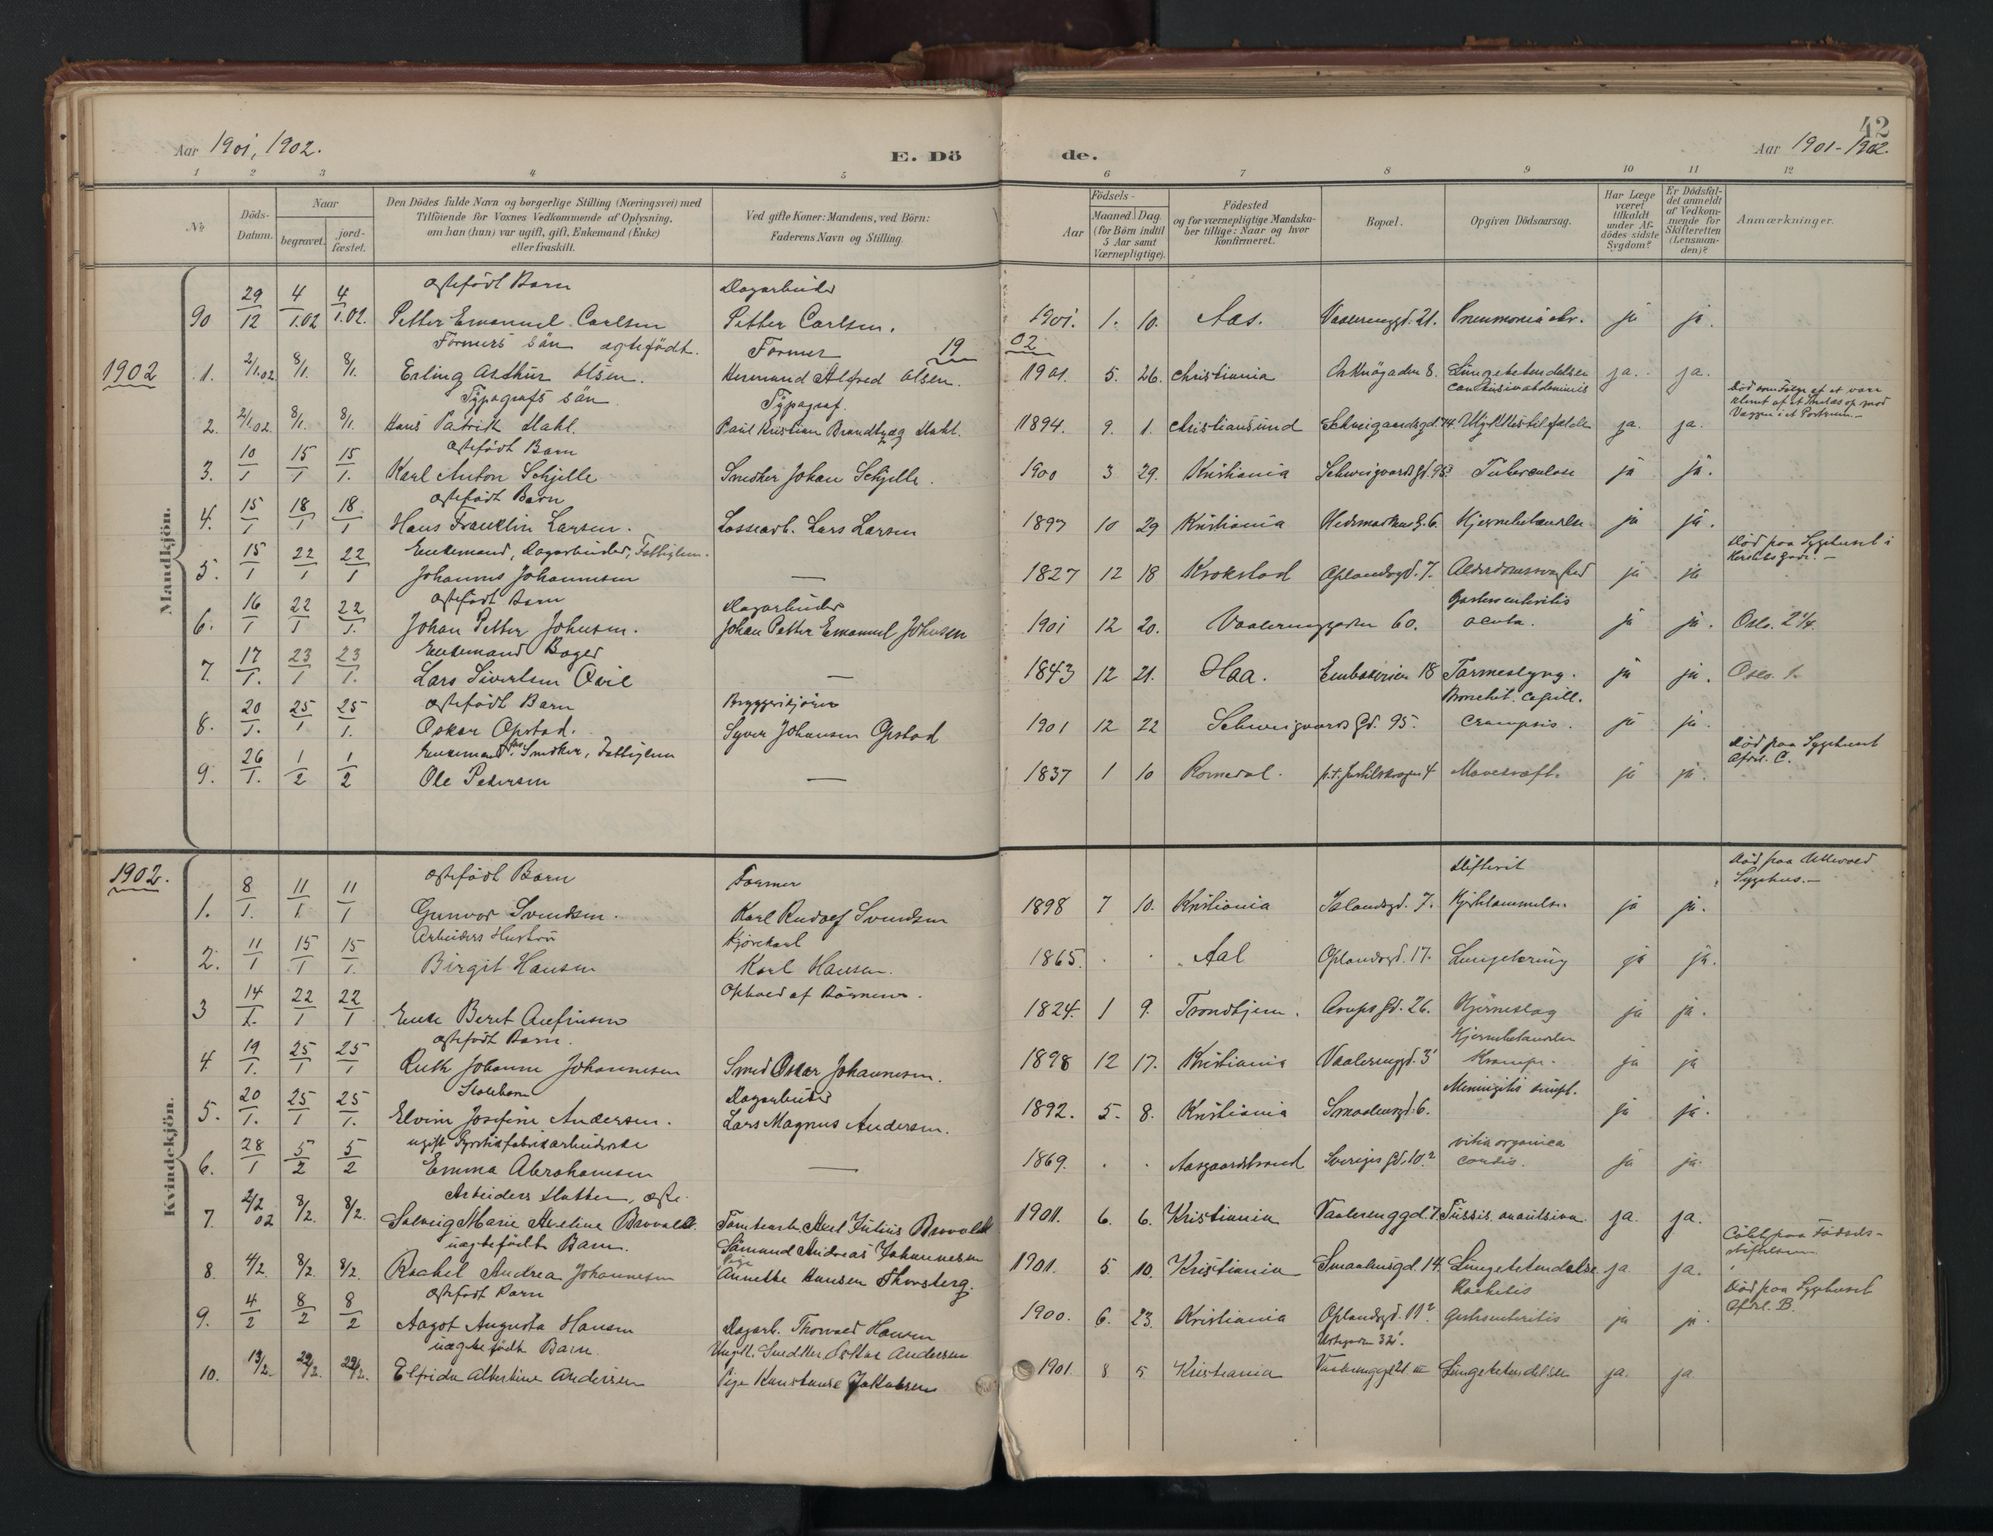 42
Aar 1901, 1902.
E. Dö de.
Aar 1901-1902.
1 2 3 4 5 6 7 8 9 10 11 12
Nr.
Döds-Datum.
Naar
begravet.
jord-fæstet.
Den Dödes fulde Navn og borgerlige Stilling (Næringsvei) med
Tilföiende for Voxnes Vedkommende af Oplysning,
om han (hun) var ugift, gift, Enkemand (Enke)
eller fraskilt.
Ved gifte Koner: Mandens, ved Börn:
Faderens Navn og Stilling.
Födsels-
Aar
Maaned Dag.
(for Börn indtil
5 Aar samt
Værnepligtige).
Födested
og for værnepligtige Mandska-
ber tillige: Naar og hvor
konfirmeret.
Bopæl.
Opgiven Dödsaarsag.
Har Læge
været
tilkaldt
under Af-
dödes sidste
Sygdom?
Er Dödsfal-
det anmeldt
af Vedkom-
mende for
Skifteretten
(Lensman-
den)?
Anmærkninger.
Mandkjön.
ægtefödt Barn Dagarbeider
90 29/12 4/1.02 4/1.02. Petter Emanuel Carlsen Petter Carlsen. 1901. 1. 10. Aas. Vaalerenggd. 21. Pneumonia ja ja.
Formers sön ægtefödt. Former 19 02
1902 1. 2/1.02 8/1. 8/1. Erling Arthur Olsen. Hermand Alfred Olsen. 1901. 5. 26. Christiania 8. Lungebetendelse ja. ja.
Typografs sön Typograf. Död som Fölge af at være
2. 2/1.02 8/1. 8/1. Hans Patrik Dahl. Paul Kristian Brandtzæg Dahl. 1894. 9. 1. Christiansund Schweigaardsgd. 74 Ulykkestilfælde ja. ja.
ægtefödt Barn
3. 10/1 15/1 15/1. Karl Anton Schjelle Snedker Johan Schjelle. 1900 3 29. Kristiania Schweigaards Gd. 95 Tuberculose ja ja.
ægtefödt Barn
4. 15/1 18/1 18/1 Hans Franklin Larsen. Lossearb. Lars Larsen 1897 10 29 Kristiania Hedemarkens G. 6. Hjernebetændelse ja ja.
Enkemand, Dagarbeider, Fattiglem. Död paa Sygehuset i
5. 15/1 22/1 22/1 Johannes Johannesen — 1827 12 18 Krokstad Oplandsgd. 7. Alderdomssvaghed ja ja
ægtefödt Barn Dagarbeider Gastroenteritis
6. 16/1 22/1 22/1. Johan Petter Johnsen. Johan Petter Emanuel Johnsen 1901 12 20. Vaalerenggaden 60. acuta. ja ja. Oslo.
Enkemand Bager
7. 17/1. 23/1 23/1. Lars Sivertsen — 1843 12 21. Haa. 18 Tarmeslyng. ja ja. Oslo
ægtefödt Barn Bryggerikjörer Bronchit. capill.
8. 20/1. 25/1 25/1. Oskar Opstad. Syver Johansen Opstad 1901 12 22 Schweigaards Gd. 95. ja ja.
Enkemand, Snedker, Fattiglem Död paa Sygehuset
9. 26/1. 1/2 1/2 Ole Pedersen — 1837 1 10 Romedal. 4 Mavekræft. ja ja. Afdel. C.
Kvindekjön.
1902. ægtefödt Barn Former Difterit Död paa Ullevaal
1. 8/1. 11/1. 11/1 Gunvor Svendsen. Karl Rudolf Svendsen 1898 7 10. Kristiania Islandsgd. 7. Hjertelammelse ja ja. Sygehus.—
Arbeiders Hustru Kjörekarl
2. 11/1 15/1 15/1. Birgit Hansen Karl Hansen. 1865. . . Aal Oplandsgd. 17. Lungetæring ja ja.
Ophold af Börnene.
3 14/1. 22/1 22/1 Enke Beret 1824. 1 9. Trondhjem. Arups Gd. 26. Hjerneslag ja ja.
ægtefödt Barn. Hjernebetændelse
4. 19/1. 25/1. 25/1 Ruth Johanne Johannesen Smed Oskar Johannesen. 1898 12 17. Kristiania Vaalerenggd. 3 Krampe. ja ja
Skolebarn Dagarbeider Meningitis simpl.
5. 20/1. 25/1 25/1. Elvine Josefine Andersen. Lars Magnus Andersen. 1892. 5. 8. Kristiania Smedensgd. 6. ja ja.
ugift fabrikarbeiderske vitia organica
6. 28/1 5/2 5/2 Emma Abrahamsen — 1869. . . Aasgaardstrand Sveriges Gd. 10.² cordis. ja ja.
Arbeiders Datter, ægte.
7. 2/2 02 8/2. 8/2. Solveig Marie Aveline Axel Julius 1901. 6. 6. Kristiania Vaalerenggd. 7. Tussis convulsiva ja. ja.
uægtefödt Barn. Sömand Andreas Johannesen
8. 4/2. 8/2. 8/2. Rachel Andrea Johannesen Pige Annette Hansen Thorsberg. 1901. 5. 10. Kristiania Smaalensgd. 14. Lungebetendelse ja ja.
ægtefödt Barn Rachitis Död paa Sygehuset
9. 4/2 8/2 8/2 Aagot Augusta Hansen Dagarb. Thorvald Hansen 1900. 6. 23. Kristiania Oplandsgd. 11² Gastroenteritis ja ja. Afdel. B.
uægtefödt Barn. Ungk. Snedker Oskar Andersen
10. 13/2. 22/2. 22/2. Elfrida Albertine Andersen Pige Konstanse Jakobsen 1901. 8 5. Kristiania Lungebetendelse ja. ja